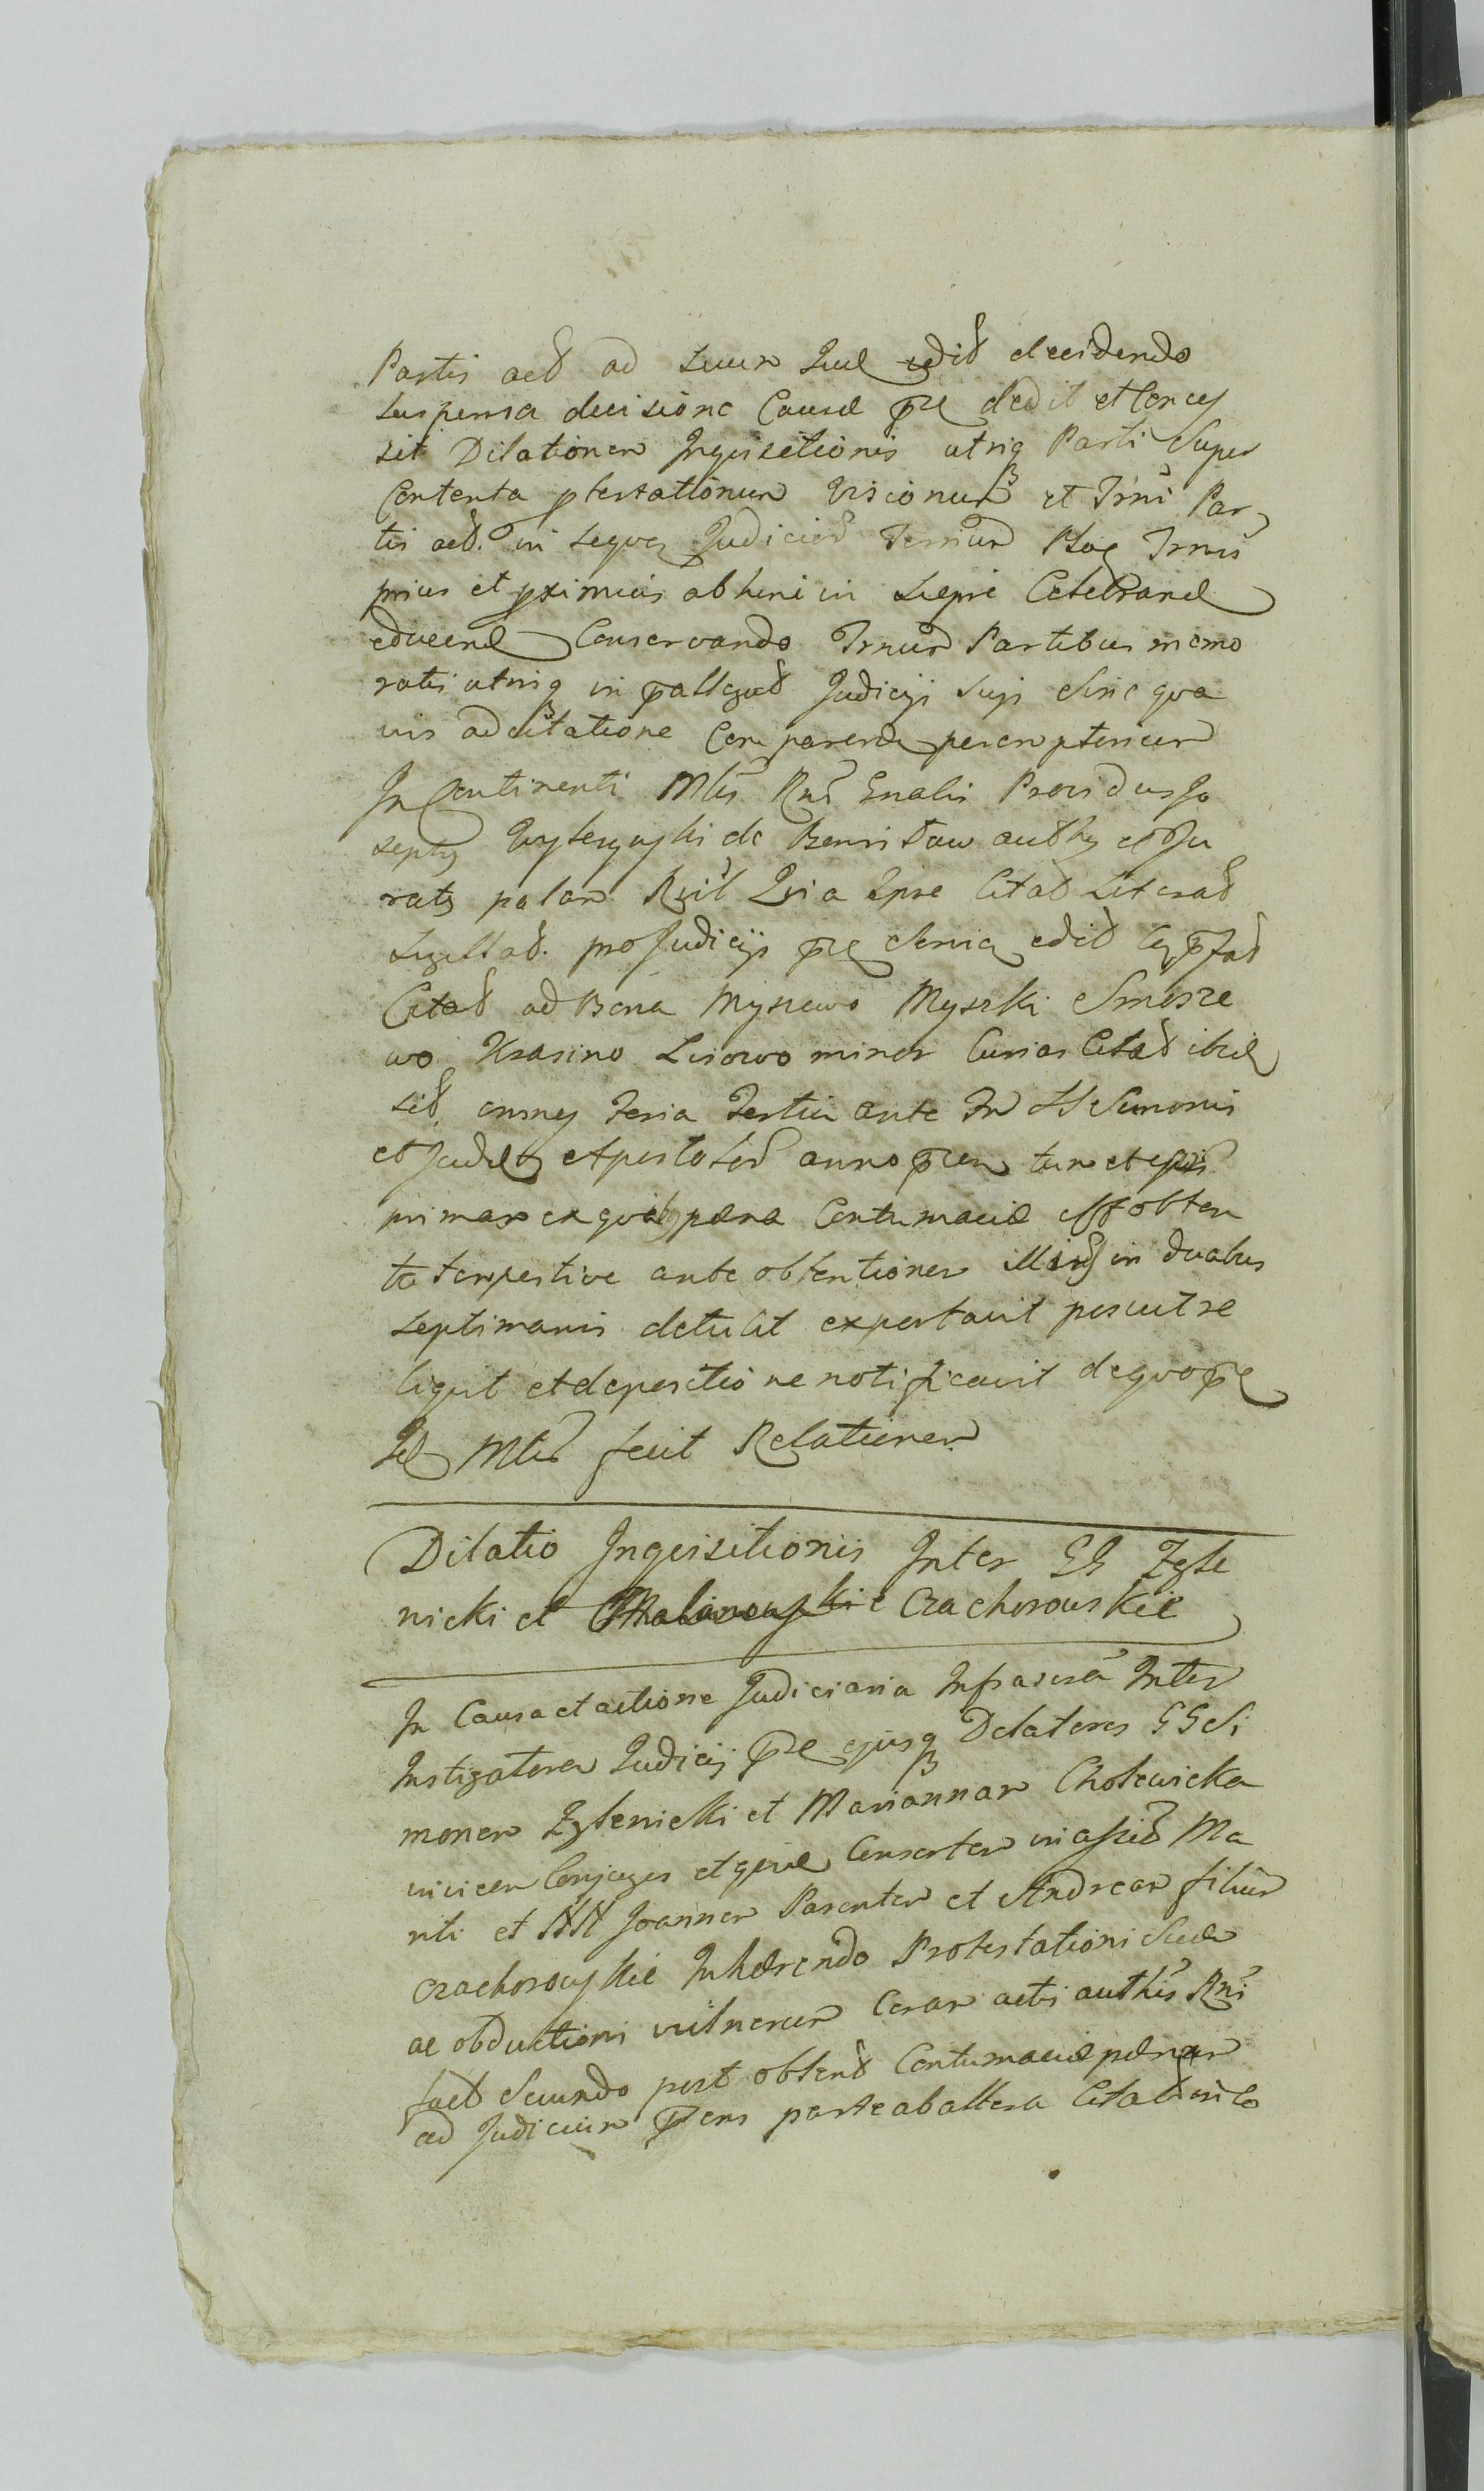 Partis act ad suum Jud edit decidendo
suspensa decisione Causæ pre dedit et conces
sit Dilationem Inquisitionis utriq Parti Super
Contenta ptestationum Visionum et Trni Par
tis act. in sequen Judicior Terminum Trnis
prius et pximius abhinc in Siepre Celebrand
educend Conservando Trnum Partibus memo
ratis utrisq in pallegat Judicij Suji Sine qva
vis adcitatione Comparend peremptorium
In Continenti Mtis Rni Gnalis Providus Jo
seph de authen et Ju
ratus palam Rgit Qvia ipse Citat Literat
Sigillat. pro Judicijs pre Servia edit
Citat ad Bona Myszewo Myszki Smosze
wo Krasino Lisowo minor Curias Citat ibid
sit omnes Feria Tertia ante Fm SS Simonis
et Judæ Apostolor anno pren tum et
primam ex qvibus pæna Contumaciæ est obten
ta tempestive ante obtentionem illius in duabus
septimanis detulit exportavit posuit re
liqvit et depositione notificavit de qvo pre
Mtis fecit Relationem
Dilatio Inqvisitionis Inter GG Zgle
nicki et Crachorowskie
In Causa et actione Judiciaria Infrascra Inter
Instigatorem Judicij pre ejusq Delatores GG Si
monem Zglenicki et Mariannam Cholewicka
invicem Conjuges et qvid Consortem in assist Ma
riti et NN Joannem Parentem et Andream filium
Crachorowskie Inhærendo Protestationi Suæ
ac obductioni vulnerum Coram actis authis Rni
fact Secundo post obtent Contumaciæ pænam
ad Judicium prens parte ab altera Citat